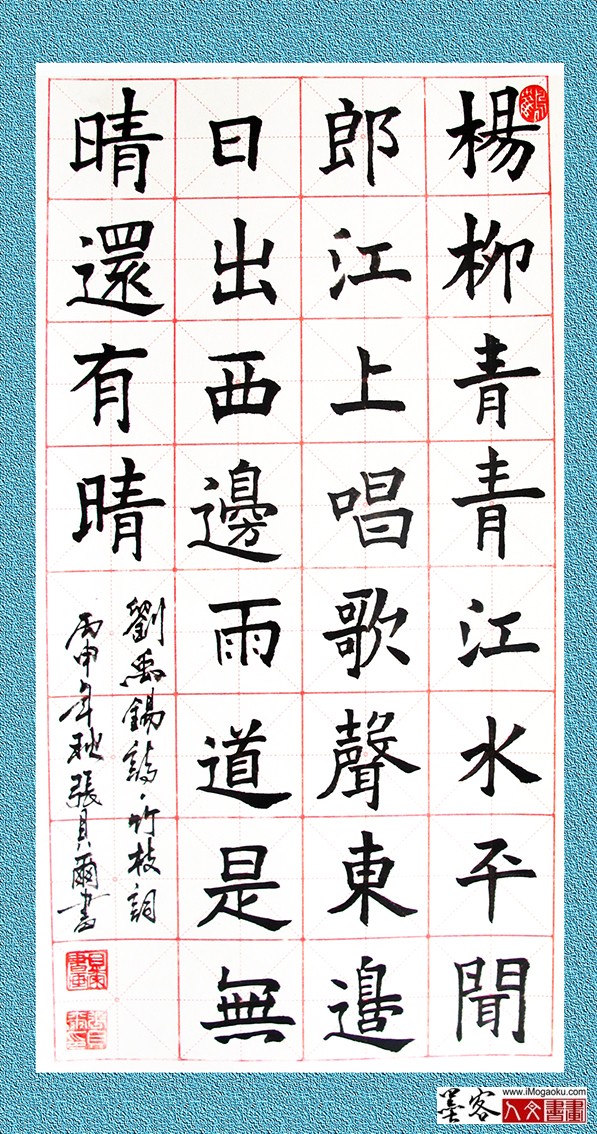 楊柳青青江水平聞
郎江上唱歌聲東邊
日出西邊雨道是無
晴還有晴
劉禹錫詩·竹枝詞
丙申年秋張貝爾書
墨客
www.iMogaoku.com
人文書畫